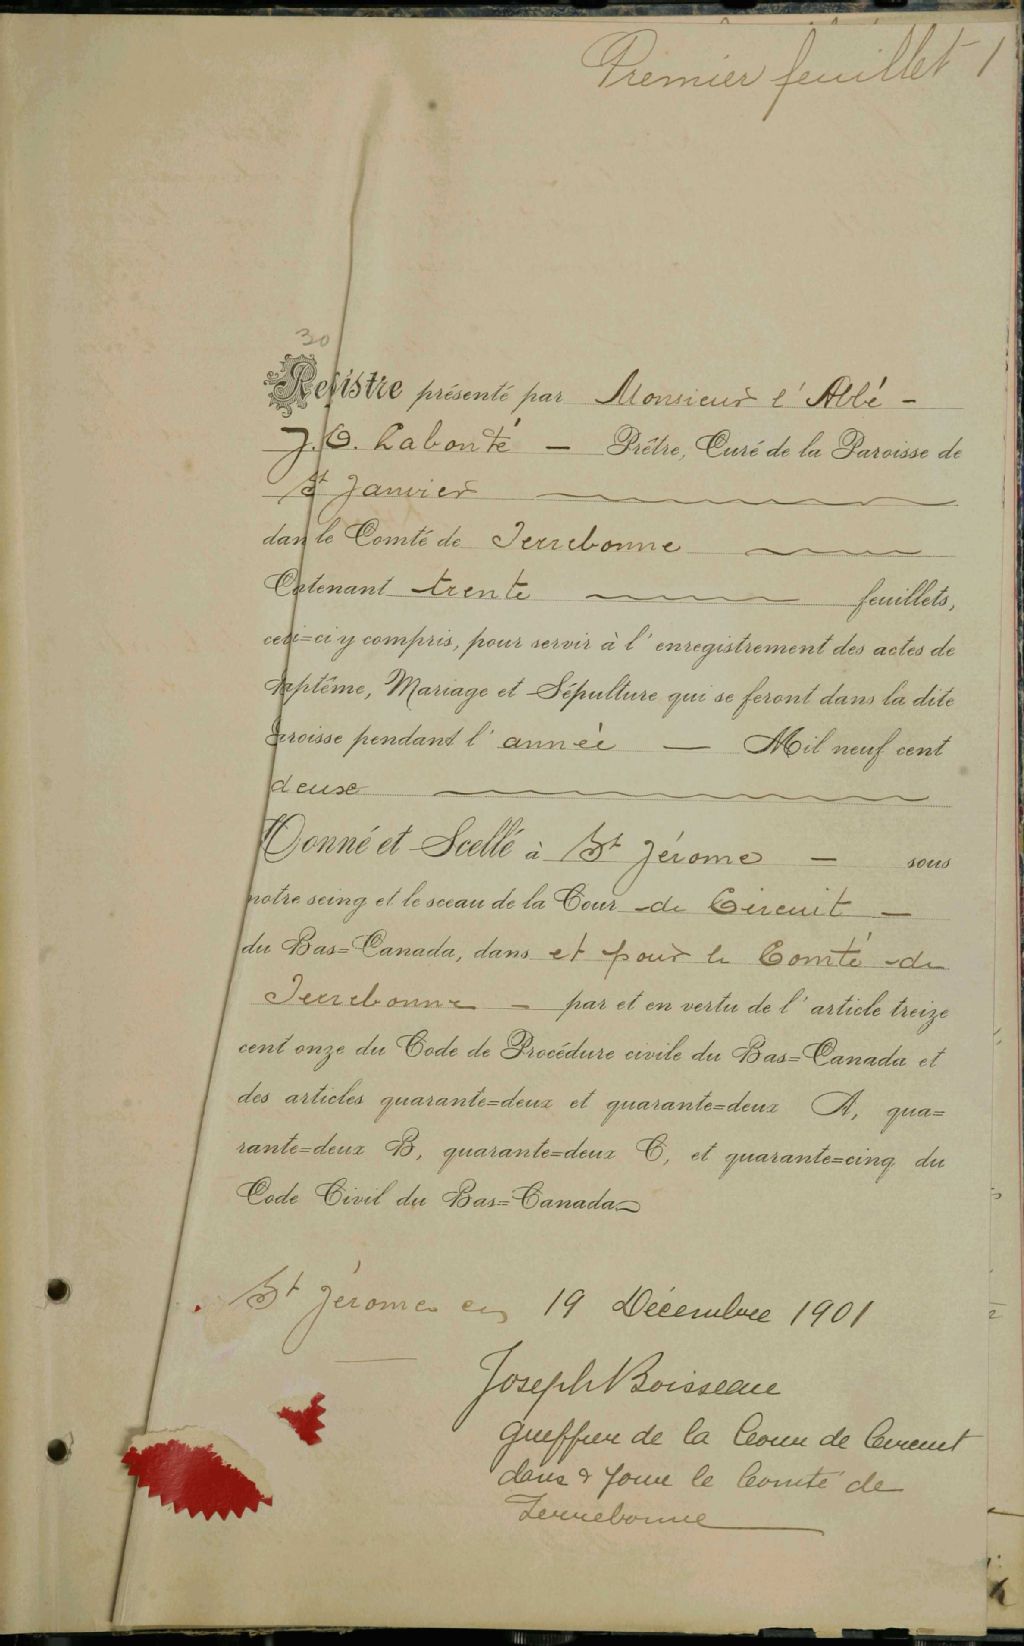 Premier feuillet 1
30
Registre présenté par Monsieur l'Abbé -
J. O. Labonté - Prêtre, Curé de la Paroisse de
St Janvier
dan le Comté de Terrebonne
Cotenant trente feuillets,
celi=ci y compris, pour servir à l'enregistrement des actes de
Baptême, Mariage et Sépulture qui se feront dans la dite
Paroisse pendant l'année - Mil neuf cent
deuxe
Donné et Scellé à St Jérome - sous
notre seing et le sceau de la Cour de Circuit -
du Bas=Canada, dans et pour le Comté de
Terrebonne - par et en vertu de l'article treize
cent onze du Code de Procédure civile du Bas=Canada et
des articles quarante=deux et quarante=deux A, qua=
rante=deux B, quarante=deux C, et quarante=cinq du
Code Civil du Bas=Canada
St Jérome ce 19 Décembre 1901
Joseph Boisseau
Greffier de la Cour de Circuit
dans & pour le Comté de
Terrebonne